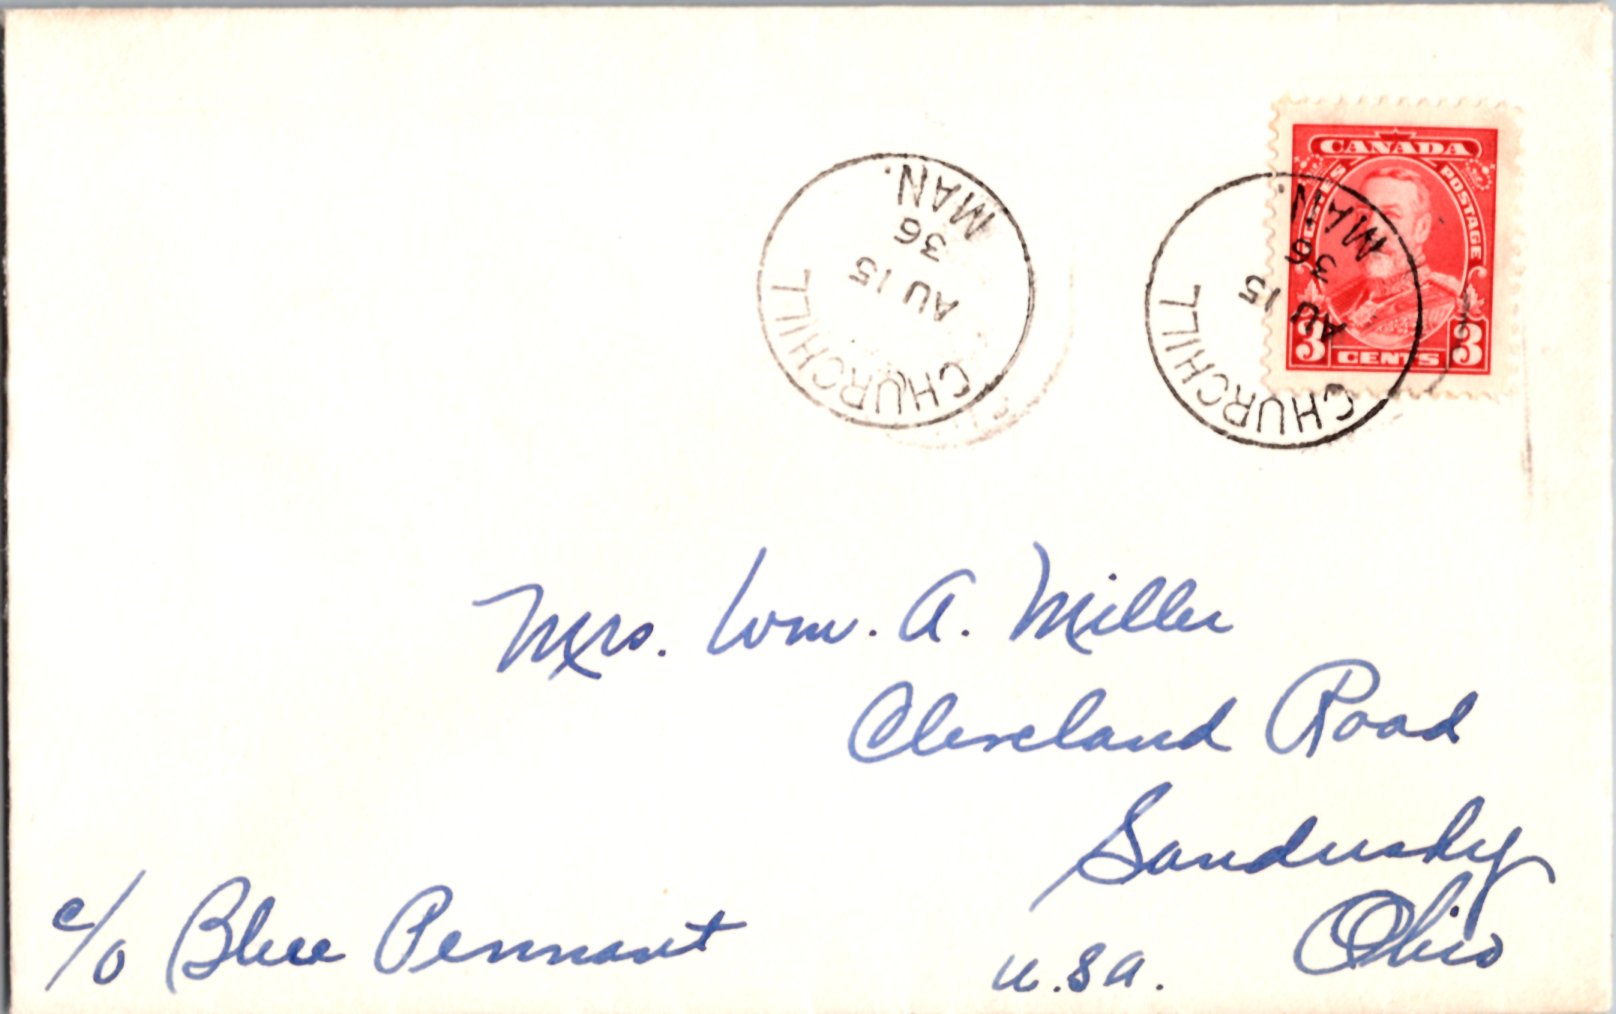 CANADA
POSTES POSTAGE
3 CENTS 3
CHURCHILL
AU 15
36
MAN.
CHURCHILL
AU 15
36
MAN.
Mrs. Wm. A. Miller
Cleveland Road
Sandusky
Ohio
U.S.A.
c/o Blue Pennant